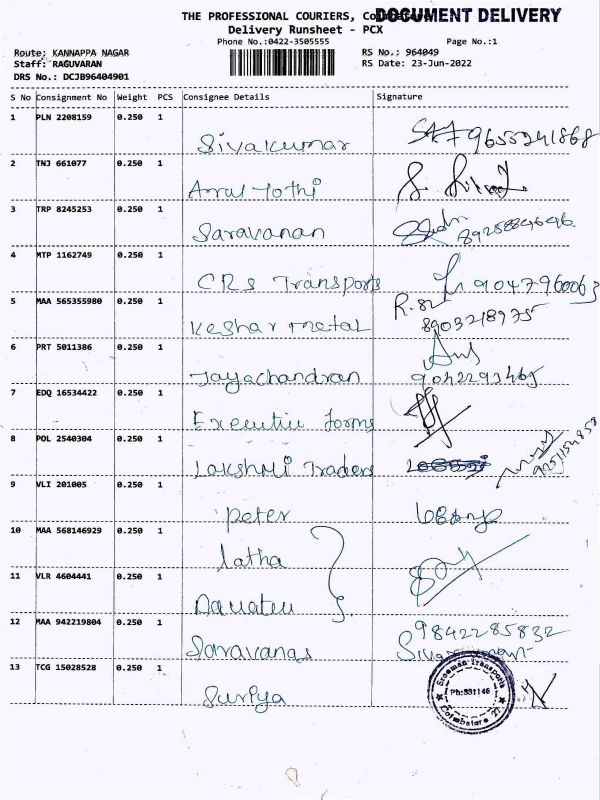 THE PROFESSIONAL COURIERS, Coimbatore
DOCUMENT DELIVERY
Delivery Runsheet - PCX
Phone No.:0422-3505555
Page No.:1
Route: KANNAPPA NAGAR
RS No.: 964049
Staff: RAGUVARAN
RS Date: 23-Jun-2022
DRS No.: DCJB96404901
S No Consignment No Weight PCS Consignee Details Signature
1 PLN 2208159 0.250 1
Sivakumar 9655241868
2 TNJ 661077 0.250 1
Arul Jothi
3 TRP 8245253 0.250 1
Saravanan
4 MTP 1162749 0.250 1
CRS Transports 9047960063
5 MAA 565355980 0.250 1
Keshar metal 8903218975
6 PRT 5011386 0.250 1
Jayachandran 9042293465
7 EDQ 16534422 0.250 1
Executive forms
8 POL 2540304 0.250 1
Lakshmi Traders
9 VLI 201005 0.250 1
Peter
10 MAA 568146929 0.250 1
Latha
11 VLR 4604441 0.250 1
12 MAA 942219804 0.250 1
9842285832
Saravanas
13 TCG 15028528 0.250 1
Suriya
Sreeman Transports
Ph:531146
Coimbatore 27